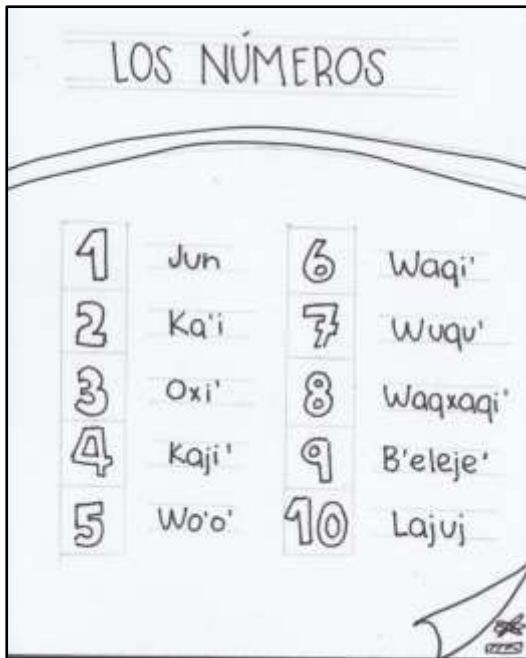 LOS NÚMEROS
1 Jun
2 Ka'i
3 Oxi'
4 Kaji'
5 Wo'o'
6 Waqi'
7 Wuqu'
8 Waqxaqi'
9 B'eleje'
10 Lajuj